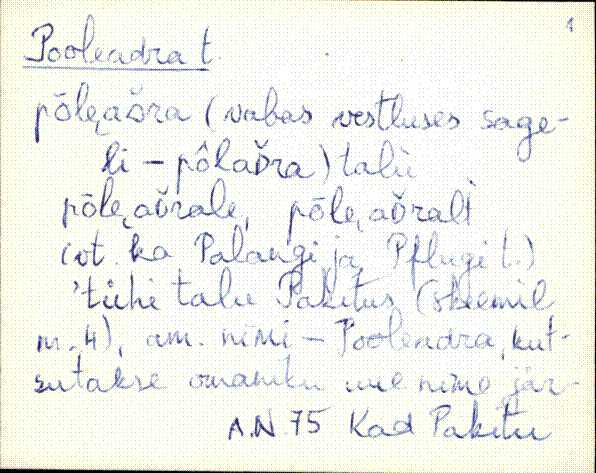 1
Pooleadra t.
pōle̮aδra (vabas vestluses sage-
li – pôlaδra) talu
pōle̮aδrale, pōle̮aδralt
(vt. ka Palangi ja Pflugi t.)
'tühi talu Pakitus (skeemil
nr. 4), am. nimi – Pooleadra, kut-
sutakse omaniku uue nime jär-
A.N. 75 Kad Pakitu